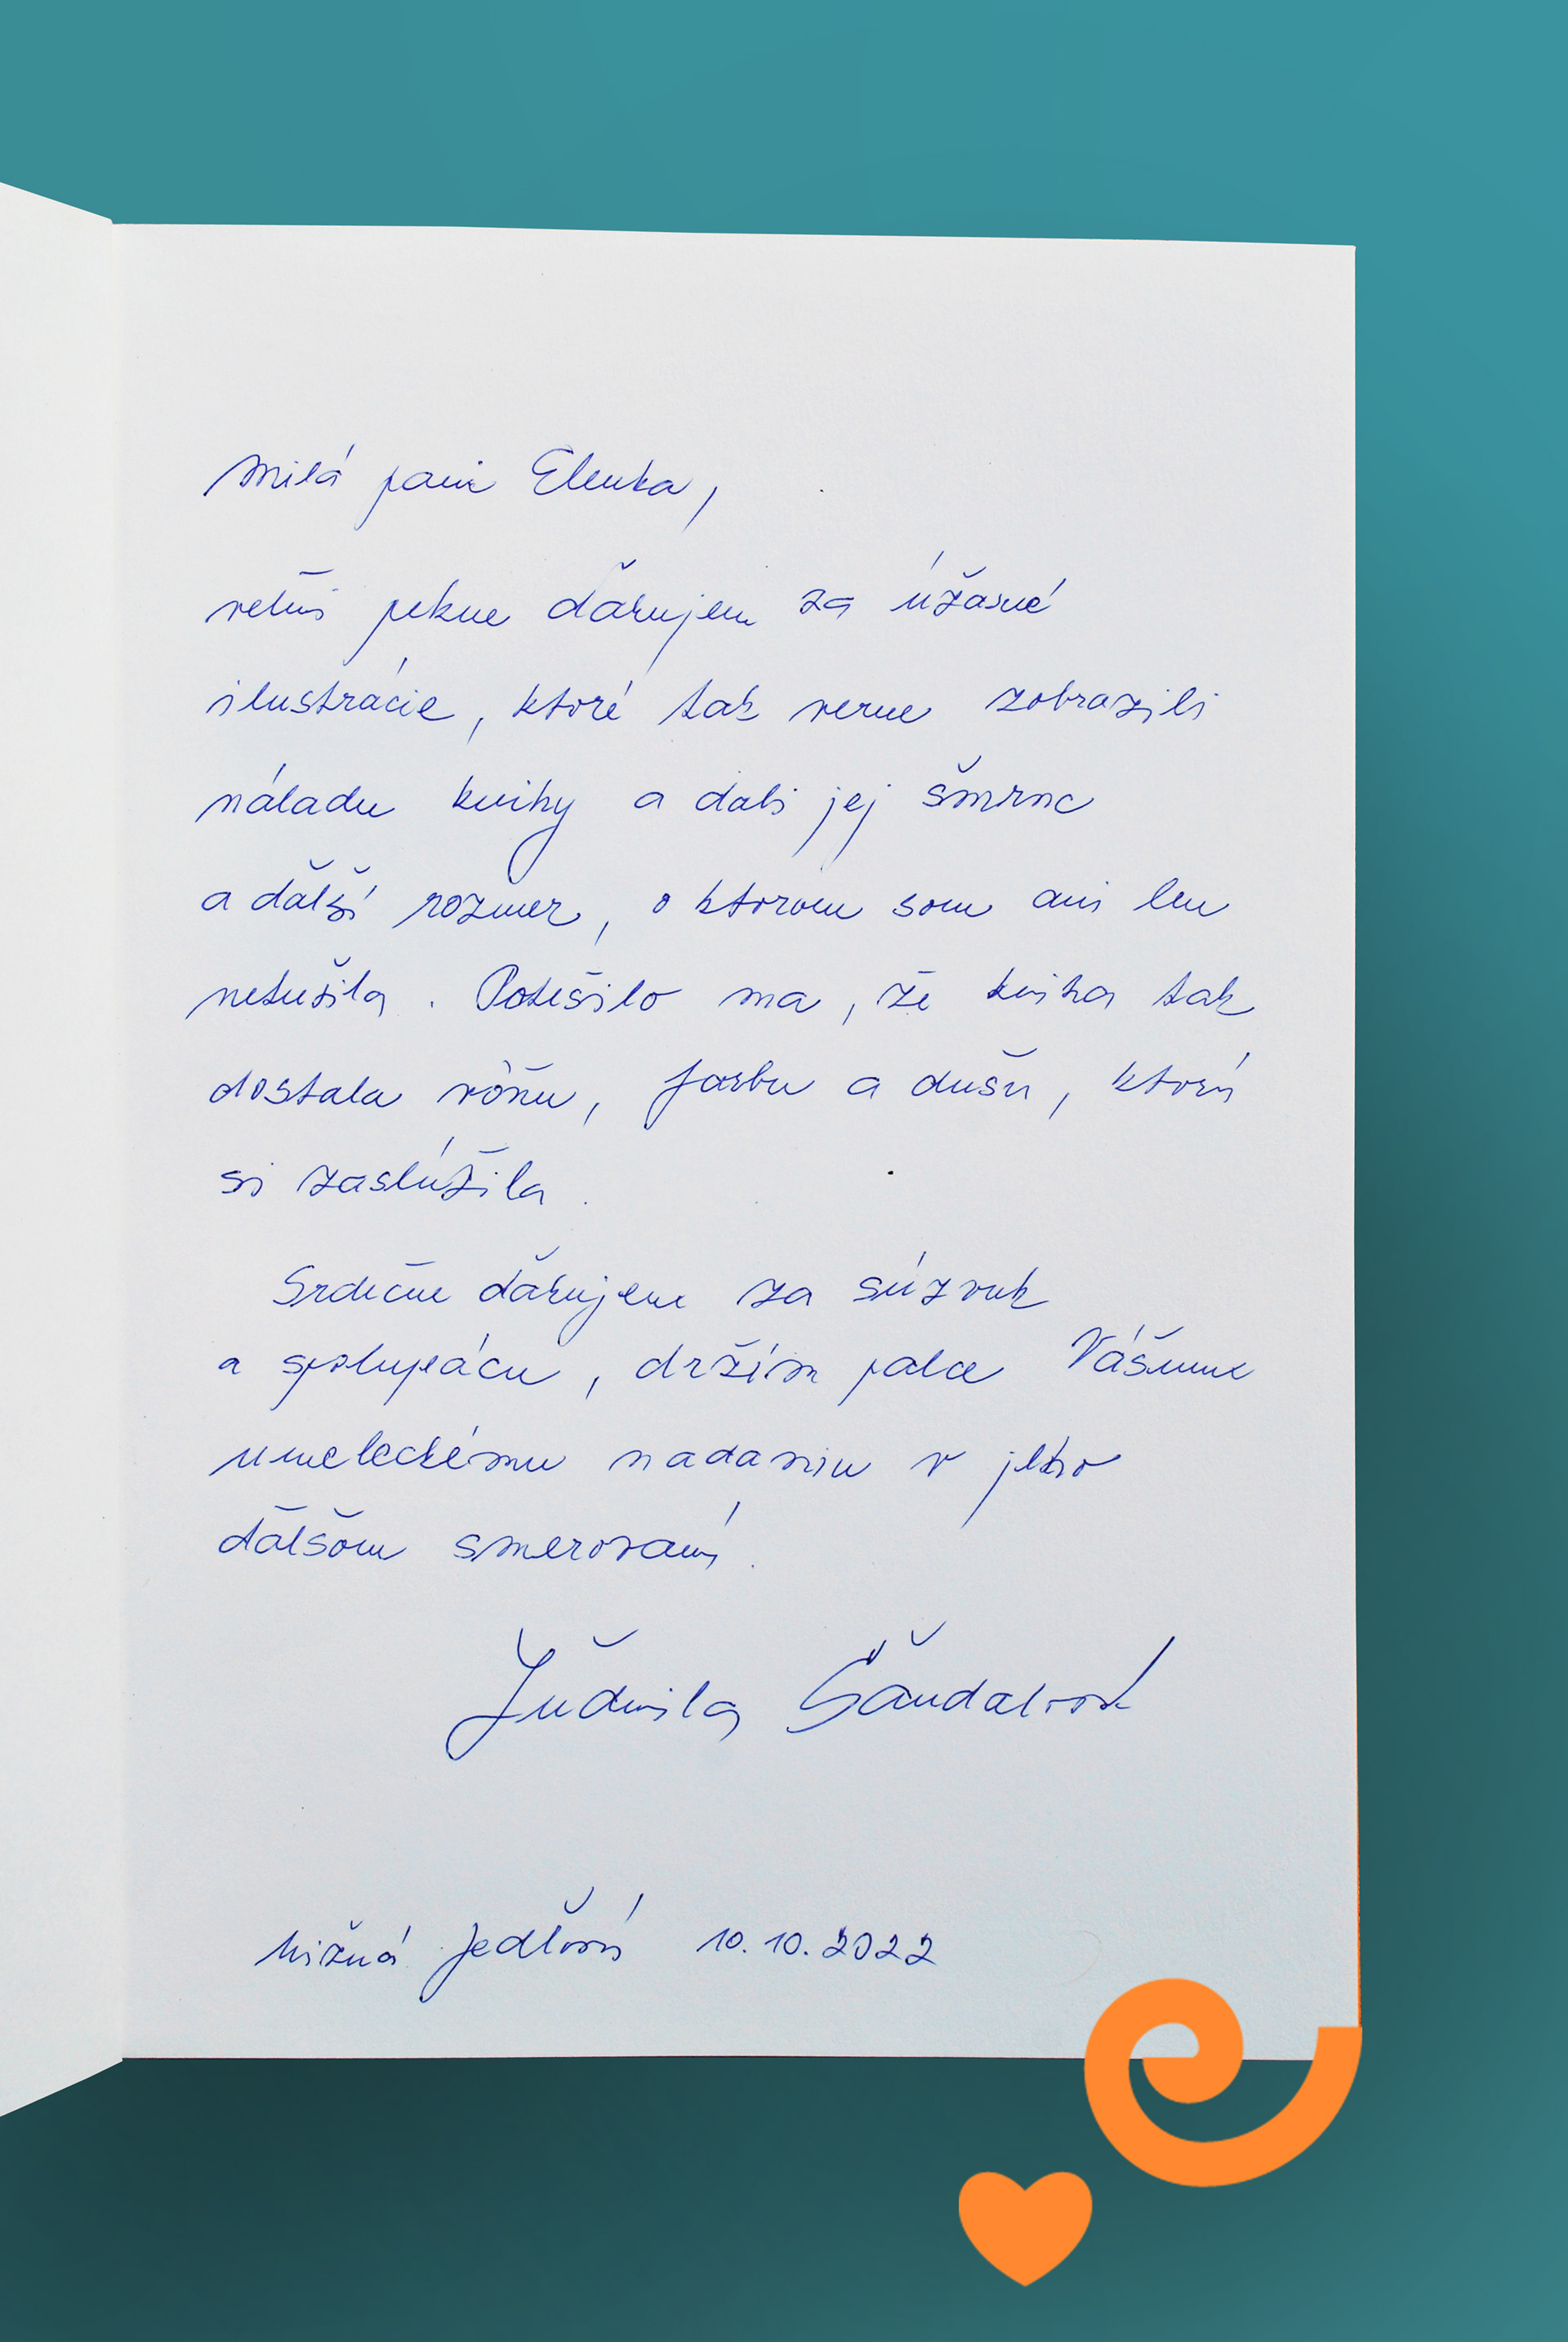 Milá pani Elenka,
veľmi pekne ďakujem za úžasné
ilustrácie, ktoré tak verne zobrazili
náladu knihy a dali jej šmrnc
a ďalší rozmer, o ktorom som ani len
netušila. Potešilo ma, že kniha tak
dostala vôňu, farbu a dušu, ktorú
si zaslúžila.
Srdečne ďakujem za súzvuk
a spoluprácu, držím palce Vášmu
umeleckému nadaniu v jeho
ďalšom smerovaní.
Ľudmila
Nižná Jedľová 10.10.2022